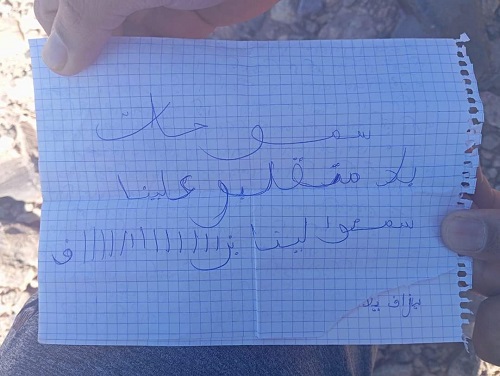 سمو حات
بلا متقلبو علينا
سمعوا لينا بزاااااااااااااف
بزاف